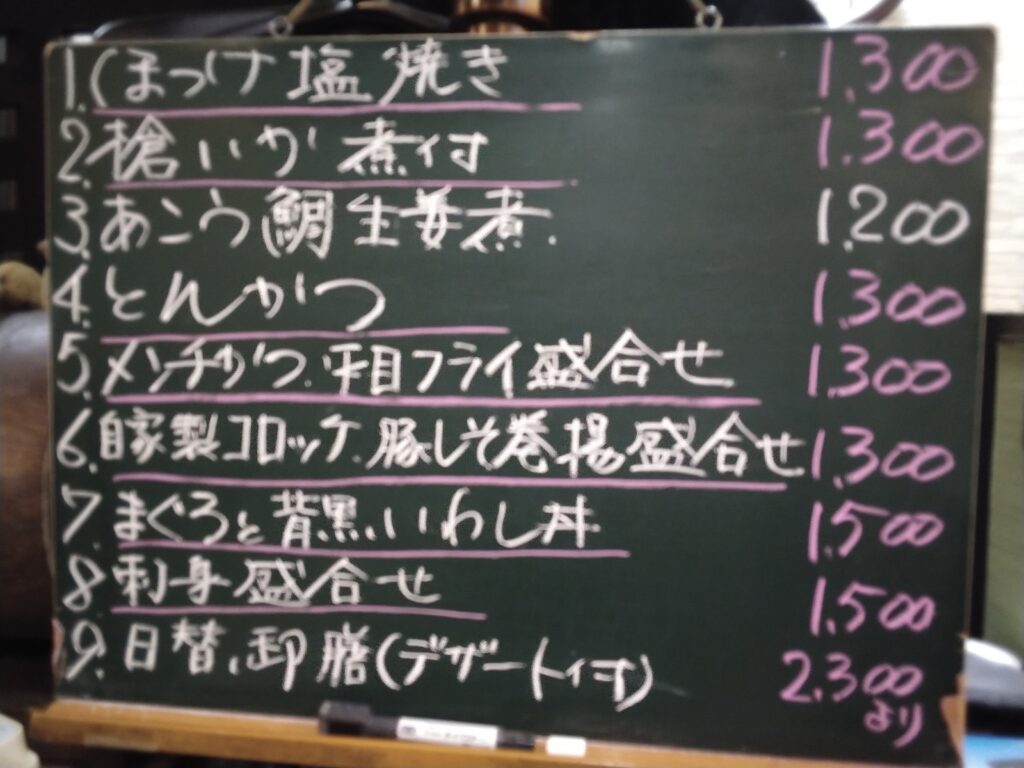 1. ほっけ塩焼き 1.300
2. 槍いか煮付 1.300
3. あこう鯛生姜煮. 1.200
4. とんかつ 1.300
5. メンチかつ、平目フライ盛合せ 1.300
6. 自家製コロッケ、豚しそ巻揚盛合せ 1.300
7 まぐろと背黒いわし丼 1.500
8 刺身盛合せ 1.500
9. 日替、卸膳(デザート付) 2.300
より